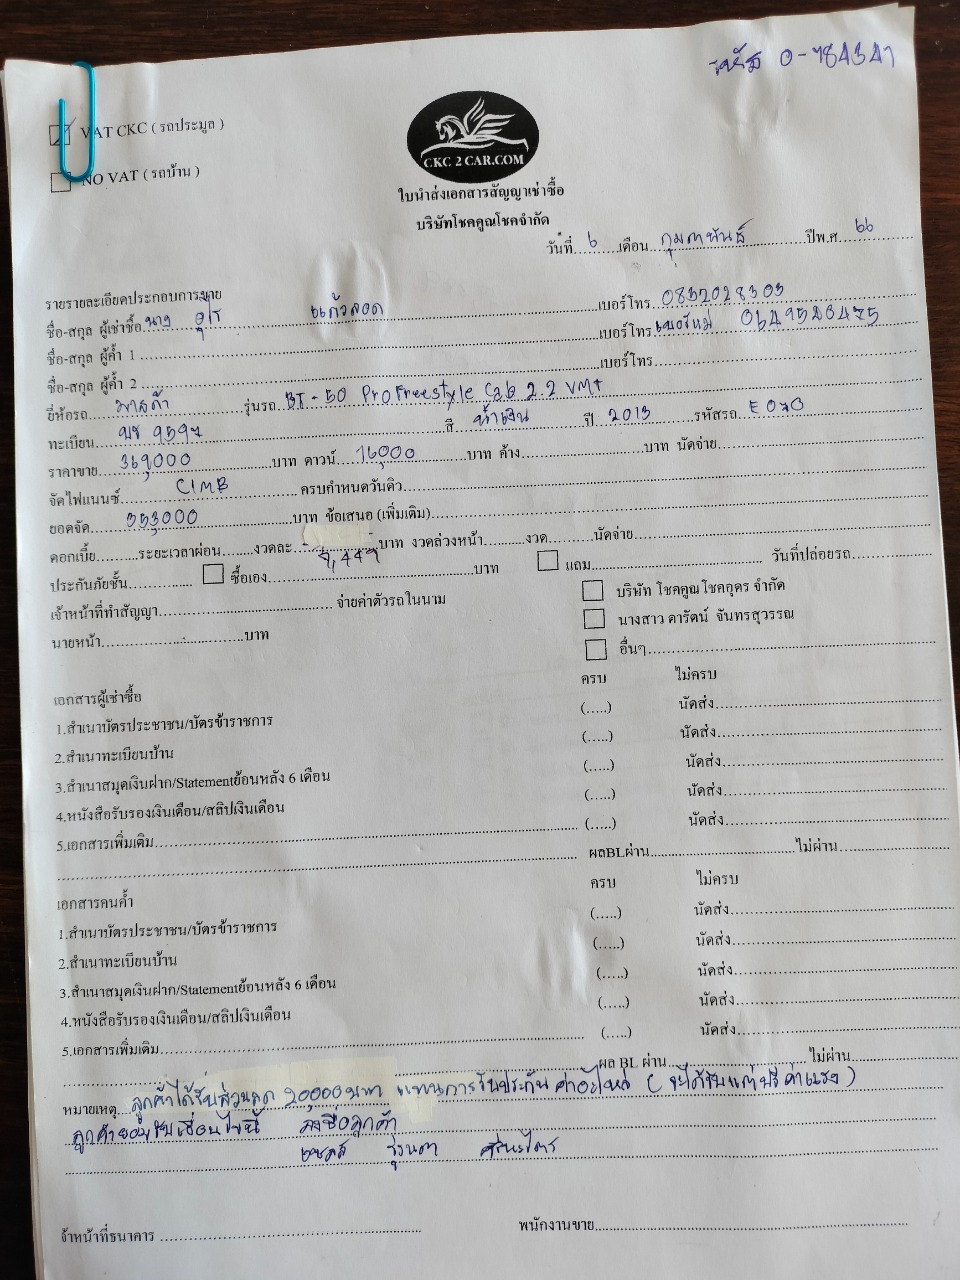 รหัส 0-784347
VAT CKC ( รถประมูล )
NO VAT ( รถบ้าน )
CKC 2 CAR.COM
ใบนำส่งเอกสารสัญญาเช่าซื้อ
บริษัทโชคคูณโชคจำกัด
วันที่ 6 เดือน กุมภาพันธ์ ปีพ.ศ 66
รายรายละเอียดประกอบการขาย
ชื่อ-สกุล ผู้เช่าซื้อ นาง แก้วลอด เบอร์โทร 0832028303
ชื่อ-สกุล ผู้ค้ำ 1 เบอร์โทร เบอร์ใหม่ 0649546475
ชื่อ-สกุล ผู้ค้ำ 2 เบอร์โทร
ยี่ห้อรถ มาสด้า รุ่นรถ BT-50 Pro Freestyle Cab 2.2 VMT
ทะเบียน 9597 สี น้ำเงิน ปี 2013 รหัสรถ E070
ราคาขาย 369,000 บาท ดาวน์ 16,000 บาท ค้าง บาท นัดจ่าย
จัดไฟแนนซ์ CIMB ครบกำหนดวันคิว
ยอดจัด 353,000 บาท ข้อเสนอ (เพิ่มเติม)
ดอกเบี้ย ระยะเวลาผ่อน งวดละ 9,449 บาท งวดล่วงหน้า งวด นัดจ่าย
ประกันภัยชั้น ซื้อเอง บาท แถม วันที่ปล่อยรถ
เจ้าหน้าที่ทำสัญญา จ่ายค่าตัวรถในนาม บริษัท โชคคูณโชคอุดร จำกัด
นายหน้า บาท นางสาว ดารัตน์ จันทรสุวรรณ
อื่นๆ
เอกสารผู้เช่าซื้อ ครบ ไม่ครบ
1.สำเนาบัตรประชาชน/บัตรข้าราชการ (.....) นัดส่ง
2.สำเนาทะเบียนบ้าน (.....) นัดส่ง
3.สำเนาสมุดเงินฝาก/Statementย้อนหลัง 6 เดือน (.....) นัดส่ง
4.หนังสือรับรองเงินเดือน/สลิปเงินเดือน (.....) นัดส่ง
5.เอกสารเพิ่มเติม (.....) นัดส่ง
ผลBLผ่าน ไม่ผ่าน
เอกสารคนค้ำ ครบ ไม่ครบ
1.สำเนาบัตรประชาชน/บัตรข้าราชการ (.....) นัดส่ง
2.สำเนาทะเบียนบ้าน (.....) นัดส่ง
3.สำเนาสมุดเงินฝาก/Statementย้อนหลัง 6 เดือน (.....) นัดส่ง
4.หนังสือรับรองเงินเดือน/สลิปเงินเดือน (.....) นัดส่ง
5.เอกสารเพิ่มเติม (.....) นัดส่ง
ผล BL ผ่าน ไม่ผ่าน
หมายเหตุ ลูกค้าได้รับส่วนลด 20000 บาท แทนการรับประกัน ค่าอะไหล่ ( จะได้รับแค่ฟรีค่าแรง )
ลูกค้ายอมรับเงื่อนไขนี้ ลงชื่อลูกค้า
เซลล์
จ้าหน้าที่ธนาคาร พนักงานขาย